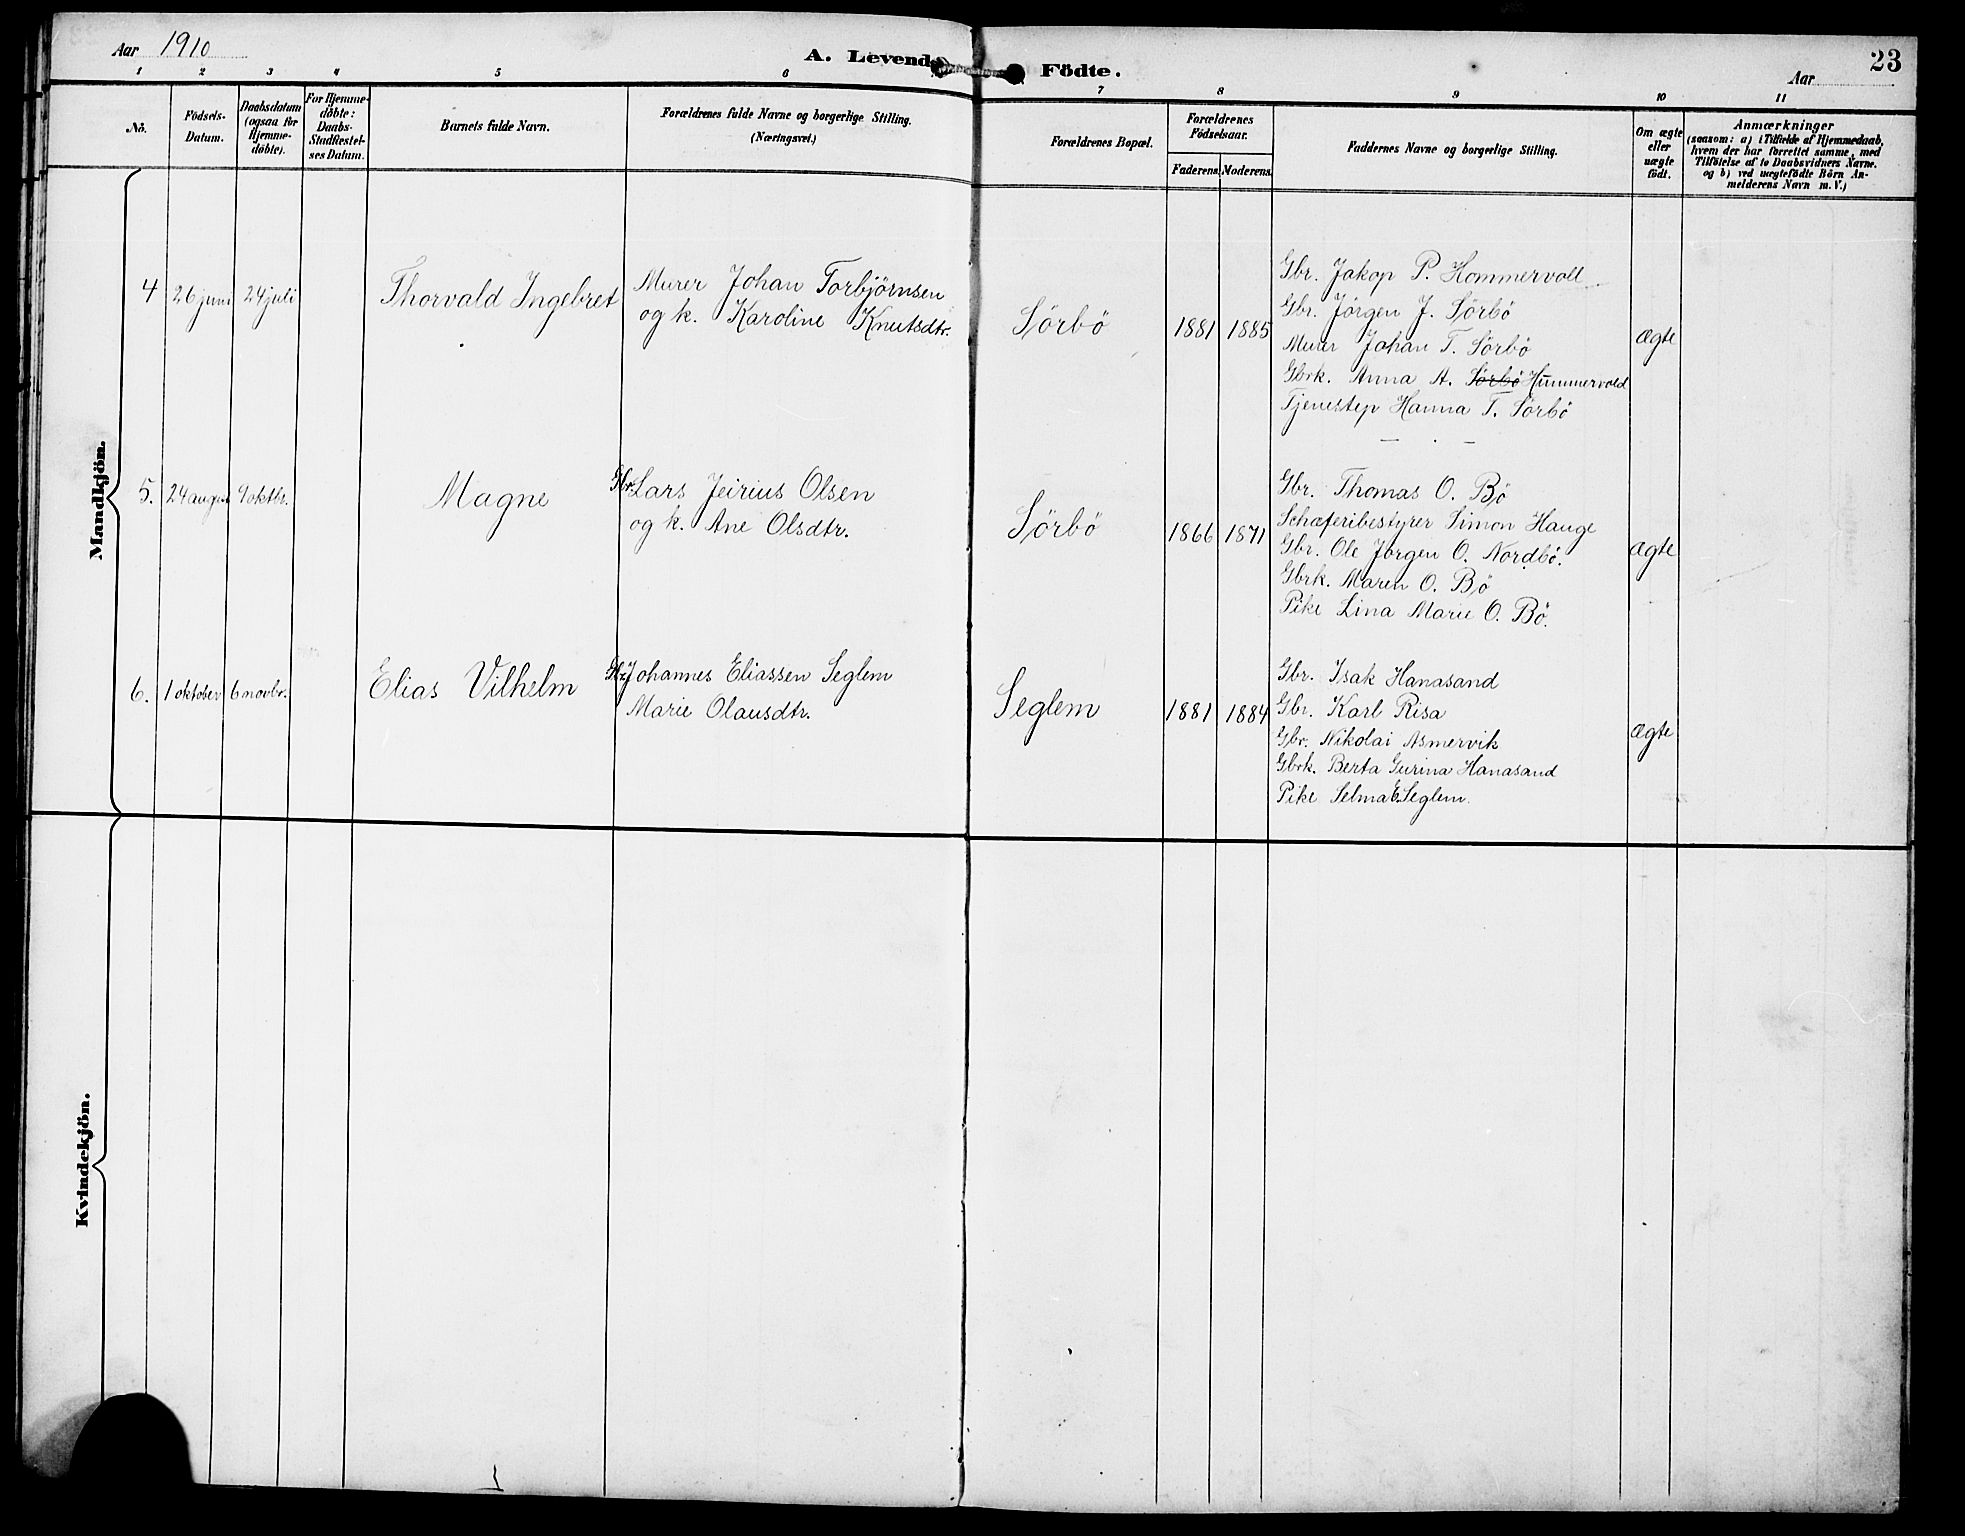 Aar 1910
A. Levende Födte.
Aar
23
1 2 3 4 5 6 7 8 9 10 11
No.
Födsels-Datum.
Daabsdatum (ogsaa for Hjemme-döbte).
For Hjemme-döbte: Daabs-Stadfæstel-ses Datum.
Barnets fulde Navn.
Forældrenes fulde Navne og borgerlige Stilling.
(Næringsvei.)
Forældrenes Bopæl.
Forældrenes Födselsaar.
Faderens. Moderens.
Faddernes Navne og borgerlige Stilling.
Om ægte eller uægte födt.
Anmærkninger
(saasom: a) i Tilfælde af Hjemmedaab,
hvem der har forrettet samme, med
Tilföielse af to Daabsvidners Navne.
og b) ved uægtefödte Börn An-
melderens Navn m. V.)
Mandkjön.
4 26 juni 24 juli Thorvald Ingebret
Murer Johan Torbjørnsen
og k. Karoline Knutsdtr.
Sörbö 1881 1885
Gbr. Jakop P. Hommervoll
Gbr. Jörgen J. Sörbö
Murer Johan T. Sörbö
Gbrk. Anna A. Sörbö Hummervold
Tjenestep Hanna T. Sörbö
Ægte
5. 24 august 9 oktbr. Magne
Gbr. Lars Jeirius Olsen
og k. Ane Olsdtr.
Sörbö 1866 1871
Gbr. Thomas O. Bö
Schæferibestyrer Simon Hauge
Gbr. Ole Jörgen O. Nordbö.
Gbrk. Maren O. Bö
Pike Lina Marie O. Bö.
Ægte
6. 1 oktober 6 novbr. Elias Vilhelm
Gbr. Johannes Eliassen Seglem
Marie Olausdtr.
Seglem 1881 1884
Gbr. Isak Hanasand
Gbr. Karl Risa
Gbr. Nikolai Asmervik
Gbrk. Berta Gurina Hanasand
Pike Selma E. Seglem.
Ægte
Kvindekjön.